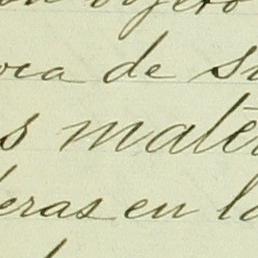 objeto
oca de su
s mate
eras en la